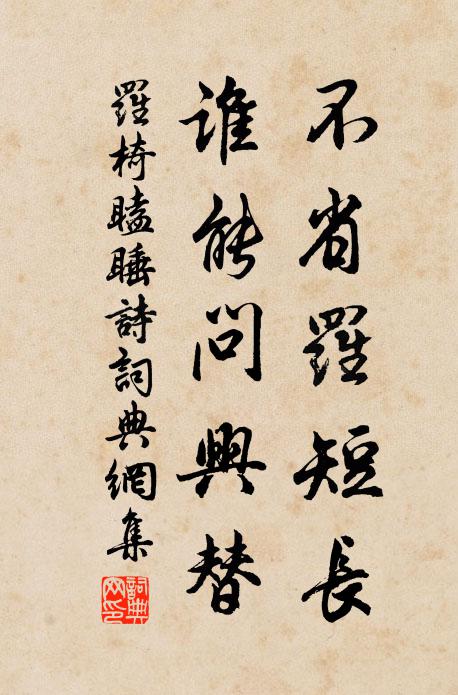 不省羅短長
誰能問興替
羅椅瞌睡詩詞典網集
詞典網印